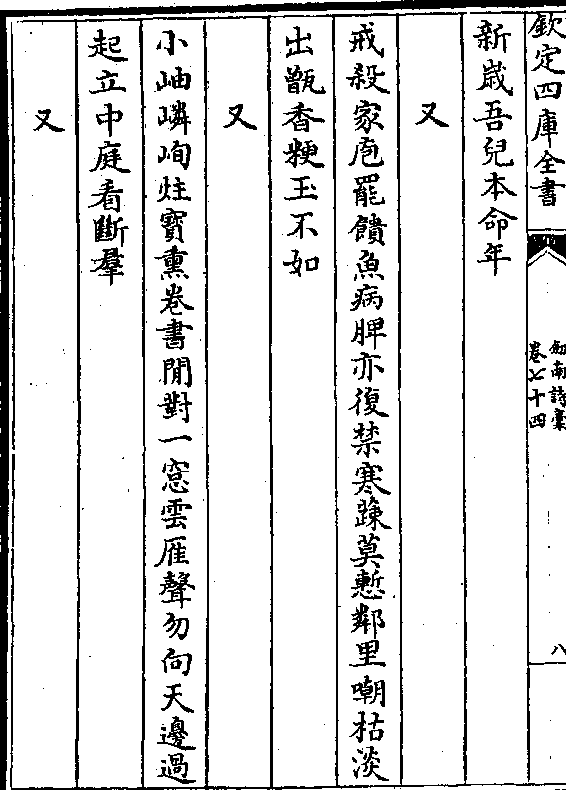 欽定四庫全書
劍南詩稾
卷七十四
八
新嵗吾兒本命年
又
戒殺家庖罷饋魚病脾亦復禁寒蔬莫慙鄰里嘲枯淡
出甑香粳玉不如
又
小岫嶙峋炷寶熏卷書閒對一窓雲雁聲勿向天邊過
起立中庭看斷羣
又